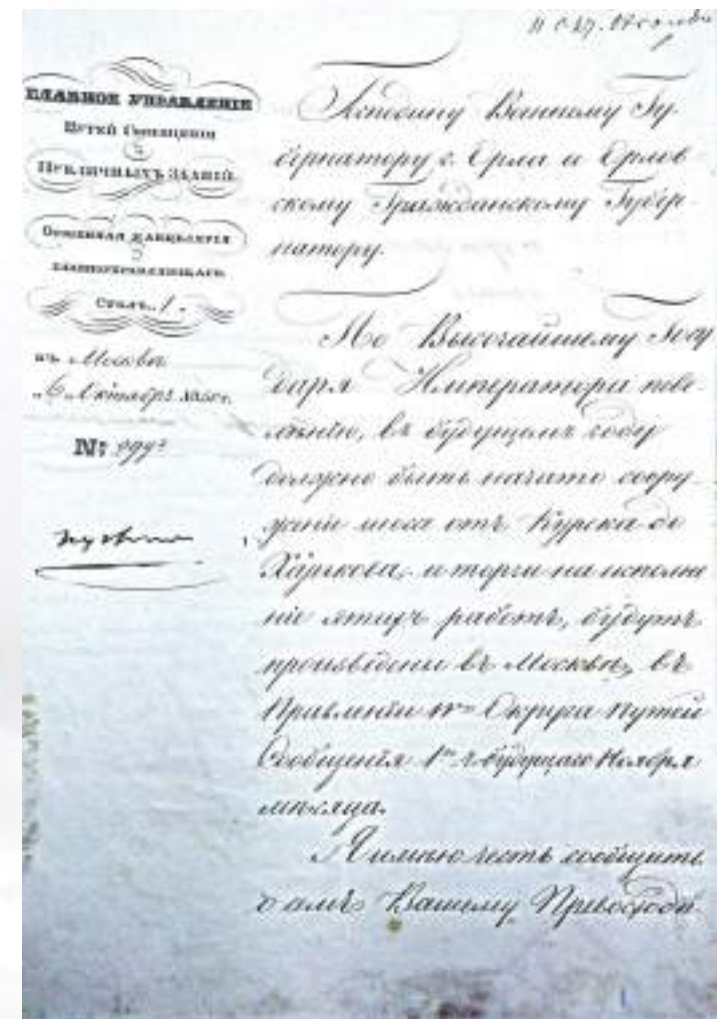 ГЛАВНОЕ УПРАВЛЕНІЕ
ПУТЕЙ СООБЩЕНІЯ
И
ПУБЛИЧНЫХЪ ЗДАНІЙ.
ОСОБЕННАЯ КАНЦЕЛЯРІЯ
ГЛАВНОУПРАВЛЯЮЩАГО.
Столъ 1.
въ Москвѣ
„6„ Октября
№
Господину Военному Гу-
бернатору г. Орла и Орлов-
скому Гражданскому Губер-
натору.
По Высочайшему Госу
даря Императора пове-
лѣнію, въ будущемъ году
должно быть начато соору-
женіе шоссе отъ Курска до
Харькова, и торги на исполне
ніе этихъ работъ, будутъ
произведены въ Москвѣ, въ
Правленіи Округа Путей
Сообщенія 1го будущаго Ноября
мѣсяца.
Я имѣю честь сообщить
о семъ Вашему Превосходи